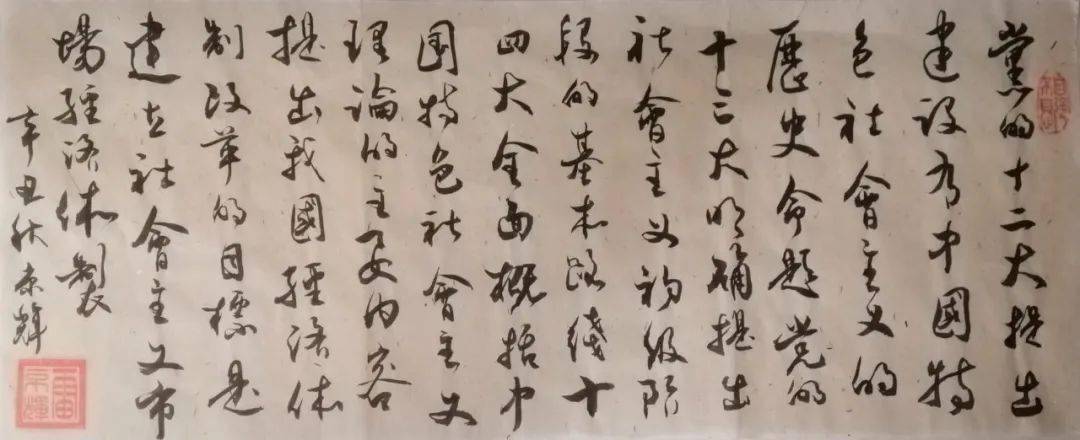 黨的十二大提出
建设有中國特
色社會主义的
歷史命題党的
十三大明确提出
社會主义初级阶
段的基本路线十
四大全面概括中
国特色社會主义
理論的主要内容
提出我國經济体
制改革的目標是
建立社會主义市
場經济体製
辛丑秋 輝